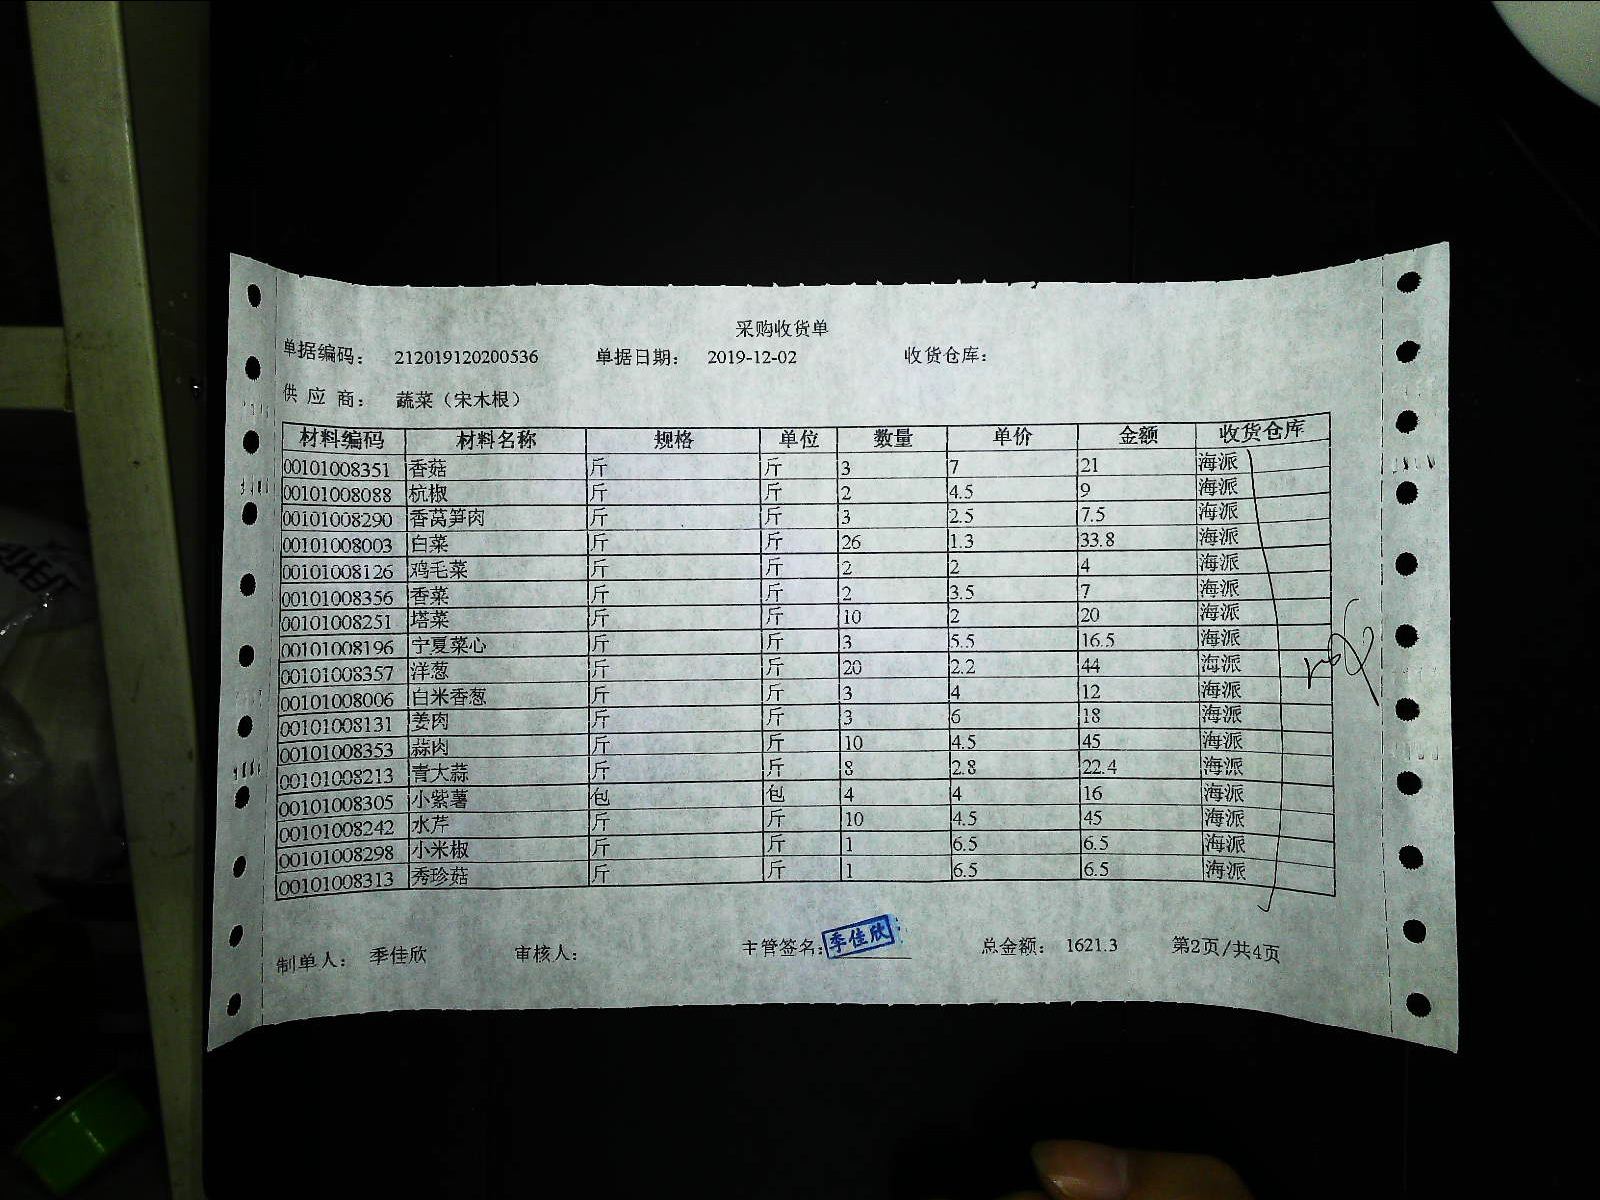 采购收货单
单据编码: 212019120200536 单据日期: 2019-12-02 收货仓库:
供应商: 蔬菜（宋木根）
材料编码 材料名称 规格 单位 数量 单价 金额 收货仓库
00101008351 香菇 斤 斤 3 7 21 海派
00101008088 杭椒 斤 斤 2 4.5 9 海派
00101008290 香莴笋肉 斤 斤 3 2.5 7.5 海派
00101008003 白菜 斤 斤 26 1.3 33.8 海派
00101008126 鸡毛菜 斤 斤 2 2 4 海派
00101008356 香菜 斤 斤 2 3.5 7 海派
00101008251 塔菜 斤 斤 10 2 20 海派
00101008196 宁夏菜心 斤 斤 3 5.5 16.5 海派
00101008357 洋葱 斤 斤 20 2.2 44 海派
00101008006 白米香葱 斤 斤 3 4 12 海派
00101008131 姜肉 斤 斤 3 6 18 海派
00101008353 蒜肉 斤 斤 10 4.5 45 海派
00101008213 青大蒜 斤 斤 8 2.8 22.4 海派
00101008305 小紫薯 包 包 4 4 16 海派
00101008242 水芹 斤 斤 10 4.5 45 海派
00101008298 小米椒 斤 斤 1 6.5 6.5 海派
00101008313 秀珍菇 斤 斤 1 6.5 6.5 海派
制单人: 季佳欣 审核人: 主管签名: 季佳欣 总金额: 1621.3 第2页/共4页